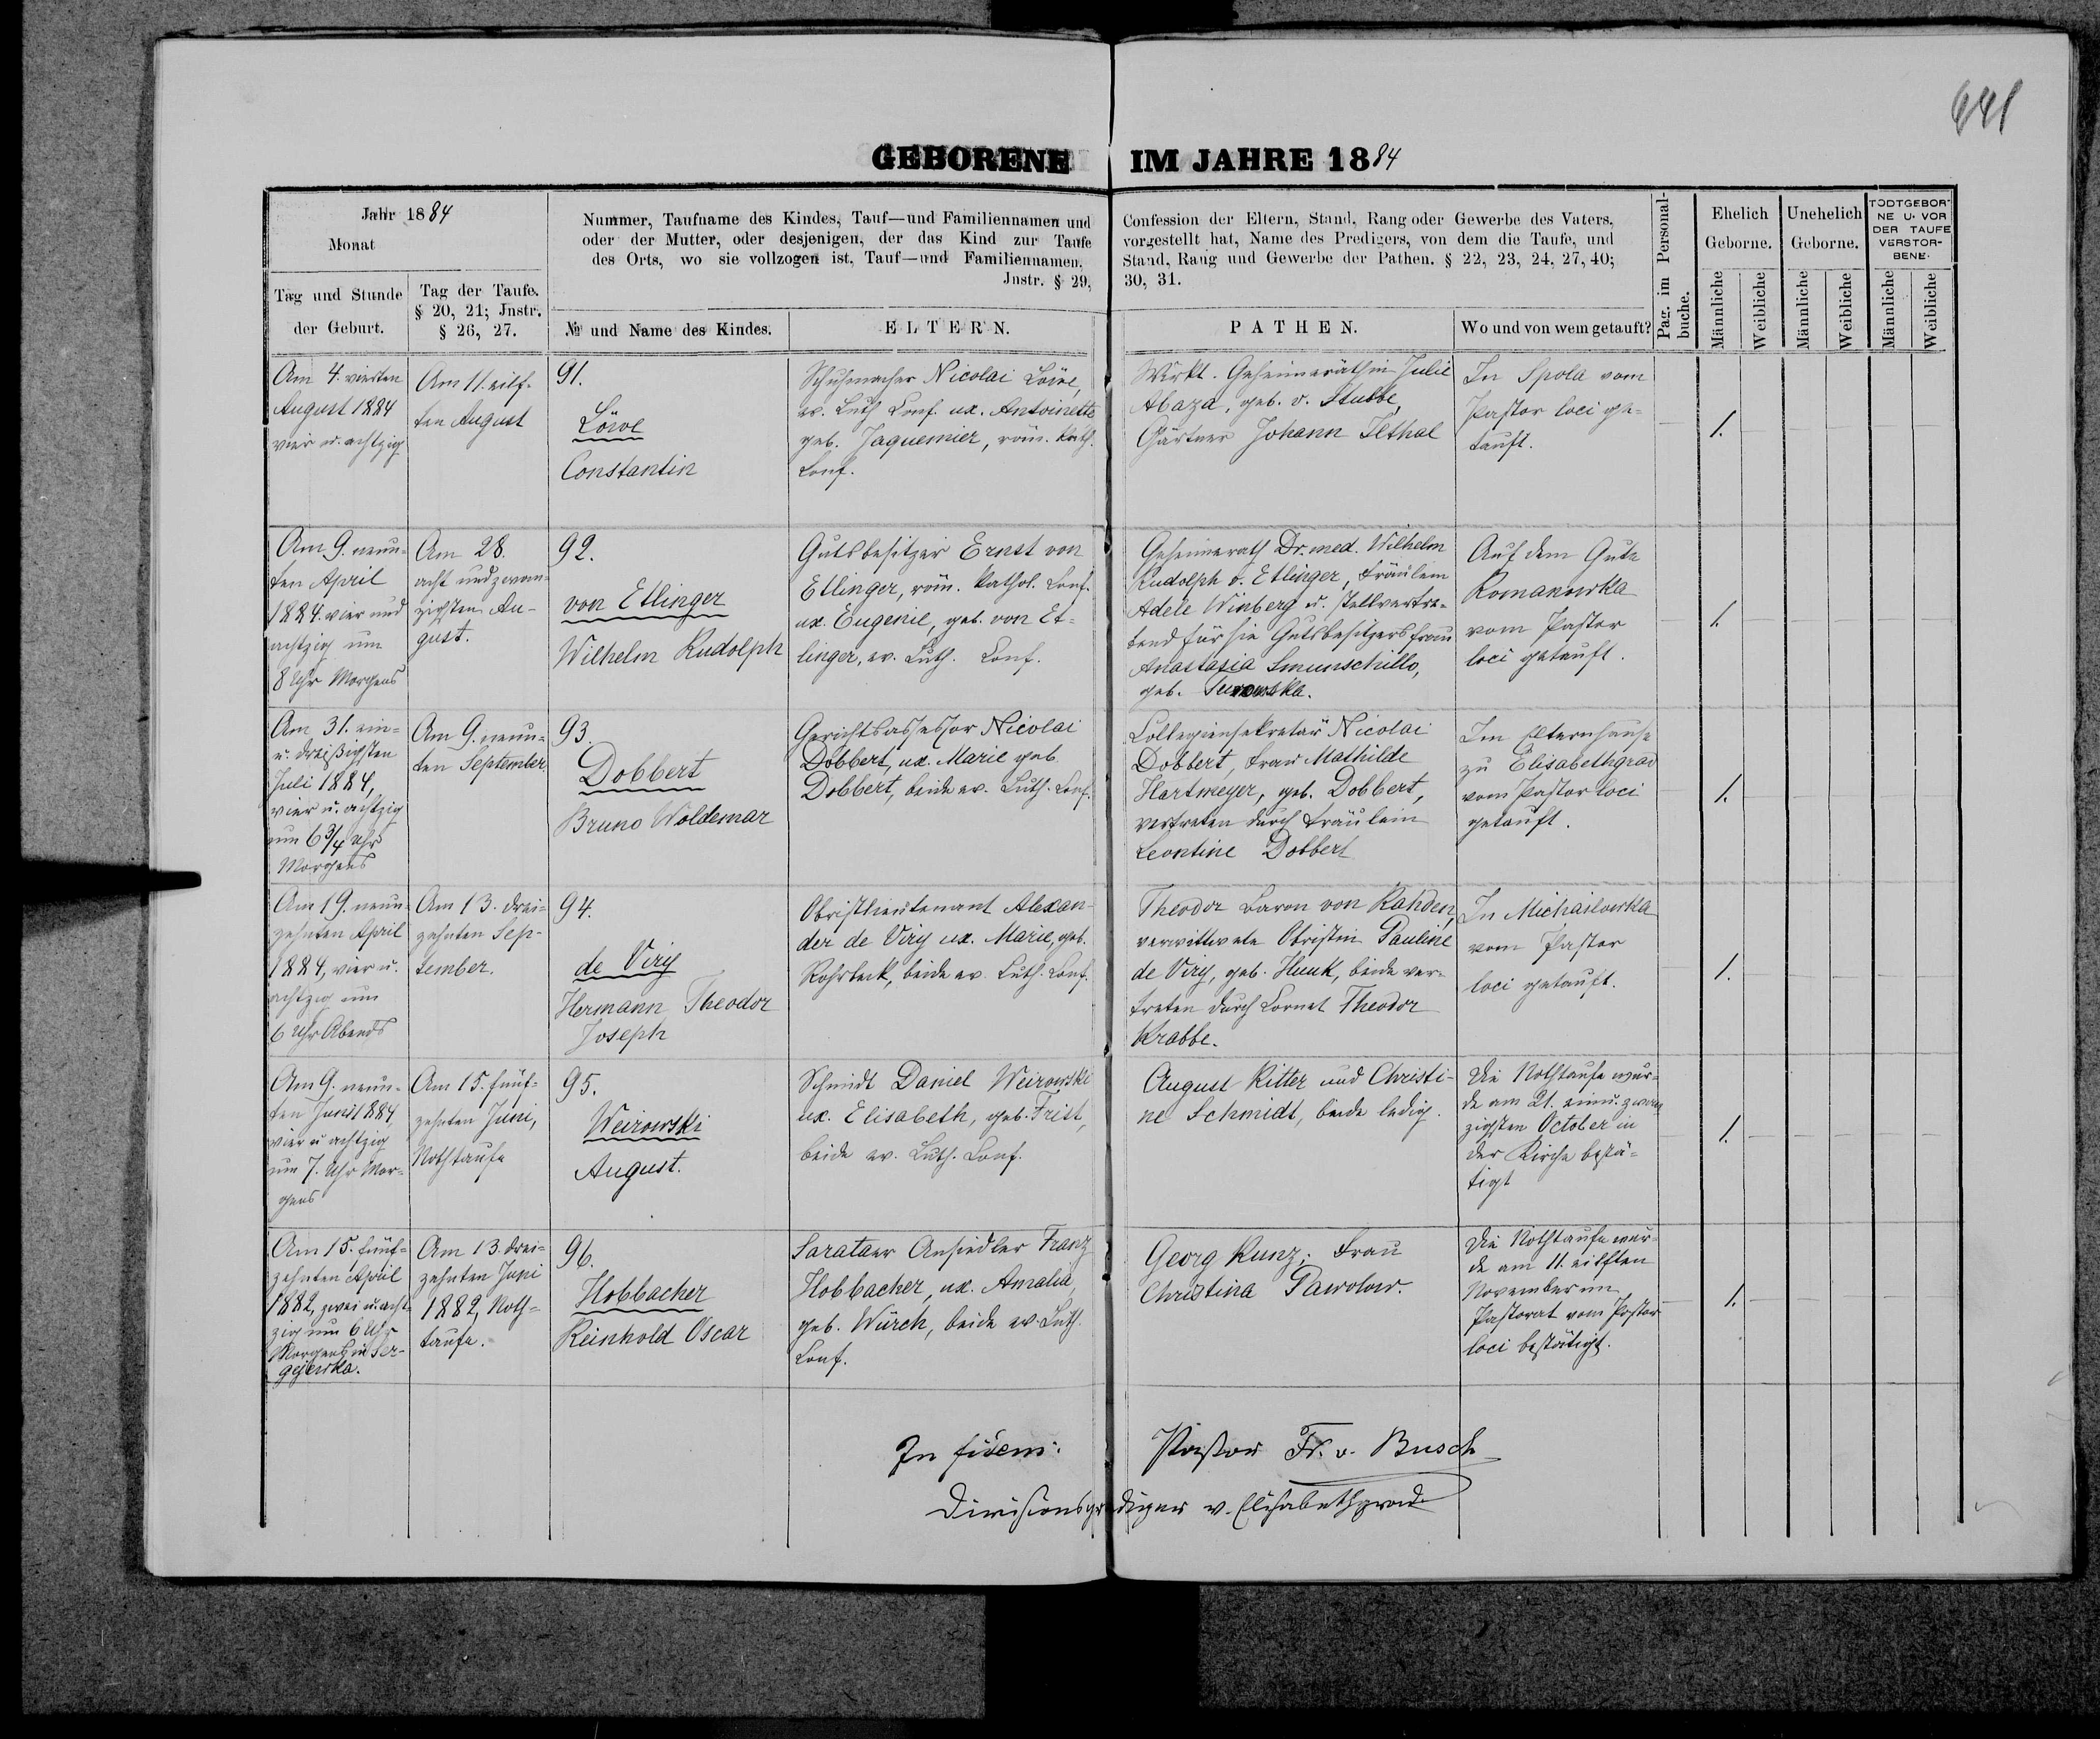 641
GEBORENE IM JAHRE 1884
Jahr 1884
Monat
Tag und Stunde
der Geburt.
Tag der Taufe.
§ 20, 21; Jnstr.
§ 26, 27.
Nummer, Taufname des Kindes, Tauf—und Familiennamen und
oder der Mutter, oder desjenigen, der das Kind zur Taufe
des Orts, wo sie vollzogen ist, Tauf—und Familiennamen,
Jnstr. § 29,
№ und Name des Kindes.
ELTERN.
Confession der Eltern, Stand, Rang oder Gewerbe des Vaters,
vorgestellt hat, Name des Predigers, von dem die Taufe, und
Stand, Rang und Gewerbe der Pathen. § 22, 23, 24, 27, 40;
30, 31.
PATHEN.
Wo und von wem getauft?
Pag. im Personal-
buche.
Ehelich
Geborne.
Unehelich
Geborne.
TODTGEBOR-
NE U. VOR
DER TAUFE
VERSTOR-
BENE.
Männliche
Weibliche
Männliche
Weibliche
Männliche
Weibliche
Am 4. vierten
August 1884
vier u. achtzig
Am 11. eilf-
ten August
91.
Löwe
Constantin
Schuhmacher Nicolai Löwe,
ev. Luth Conf. ux. Antoinette
geb. Jaquemier, röm. kath.
Conf.
Wirkl. Geheimeräthin Julie
Abaza, geb. v. Stubbe,
Gärtner Johann Ilthal
In Spola vom
Pastor loci ge-
tauft.
1.
Am 9. neun-
ten April
1884. vier und
achtzig um
8 Uhr Morgens
Am 28.
acht und zwan-
zigsten Au-
gust.
92.
von Etlinger
Wilhelm Rudolph
Gutsbesitzer Ernst von
Etlinger, röm. kathol. Conf.
ux. Eugenie, geb. von Et-
linger, ev. Luth. Conf.
Geheimerath Dr. med. Wilhelm
Rudolph v. Etlinger, Fräulein
Adele Winberg u. stellvertre-
tend für sie Gutsbesitzersfrau
Anastasia Smunschillo,
geb.
Auf dem Gute
Romanowka
vom Pastor
loci getauft.
1.
Am 31. ein-
u. dreißigsten
Juli 1884,
vier u. achtzig
um 6 3/4 Uhr
Morgens
Am 9. neun-
ten September.
93.
Dobbert
Bruno Woldemar
Gerichtsassessor Nicolai
Dobbert, ux. Marie geb.
Dobbert, beide ev. Luth. Conf.
Collegiensekretär Nicolai
Dobbert, Frau Mathilde
Hartmeyer, geb. Dobbert,
vertreten durch Fräulein
Leontine Dobbert
Im Elternhause
zu Elisabethgrad
vom Pastor loci
getauft.
1.
Am 19. neun-
zehnten April
1884, vier u.
achtzig um
6 Uhr Abends
Am 13. drei-
zehnten Sep-
tember.
94.
de Viry
Hermann Theodor
Joseph
Obristlieutenant Alexan-
der de Viry ux. Marie, geb.
Rohrbeck, beide ev. Luth. Conf.
Theodor Baron von Rahden,
verwittwete Obristin Pauline
de Viry, geb. Huuk, beide ver-
treten durch Cornet Theodor
Krabbe.
In Michailowka
vom Pastor
loci getauft.
1.
Am 9. neun-
ten Juni 1884,
vier u achtzig
um 7. Uhr Mor-
gens
Am 15. fünf-
zehnten Juni,
Nothtaufe
95.
Weirowski
August.
Schmidt Daniel Weirowski
ux. Elisabeth, geb. Frist,
beide ev. Luth. Conf.
August Ritter und Christi-
ne Schmidt, beide ledig.
Die Nothtaufe wur-
de am 21. ein u. zwan
zigsten October in
der Kirche bestä-
tigt
1.
Am 15. fünf-
zehnten April
1882, zwei u. acht-
zig um 6 Uhr
Morgens in Ser-
gejewka.
Am 13. drei-
zehnten Juni
1882, Noth-
taufe.
96.
Hobbacher
Reinhold Oscar
Sarataer Ansiedler Franz
Hobbacher, ux. Amalia,
geb. Würch, beide ev. Luth.
Conf.
Georg Kunz; Frau
Christina Pawolow.
Die Nothtaufe wur-
de am 11. eilften
November im
Pastorat vom Pastor
loci bestätigt.
1.
In fidem: Pastor Fr. v. Busch
Divisionsprediger v. Elisabethgrad